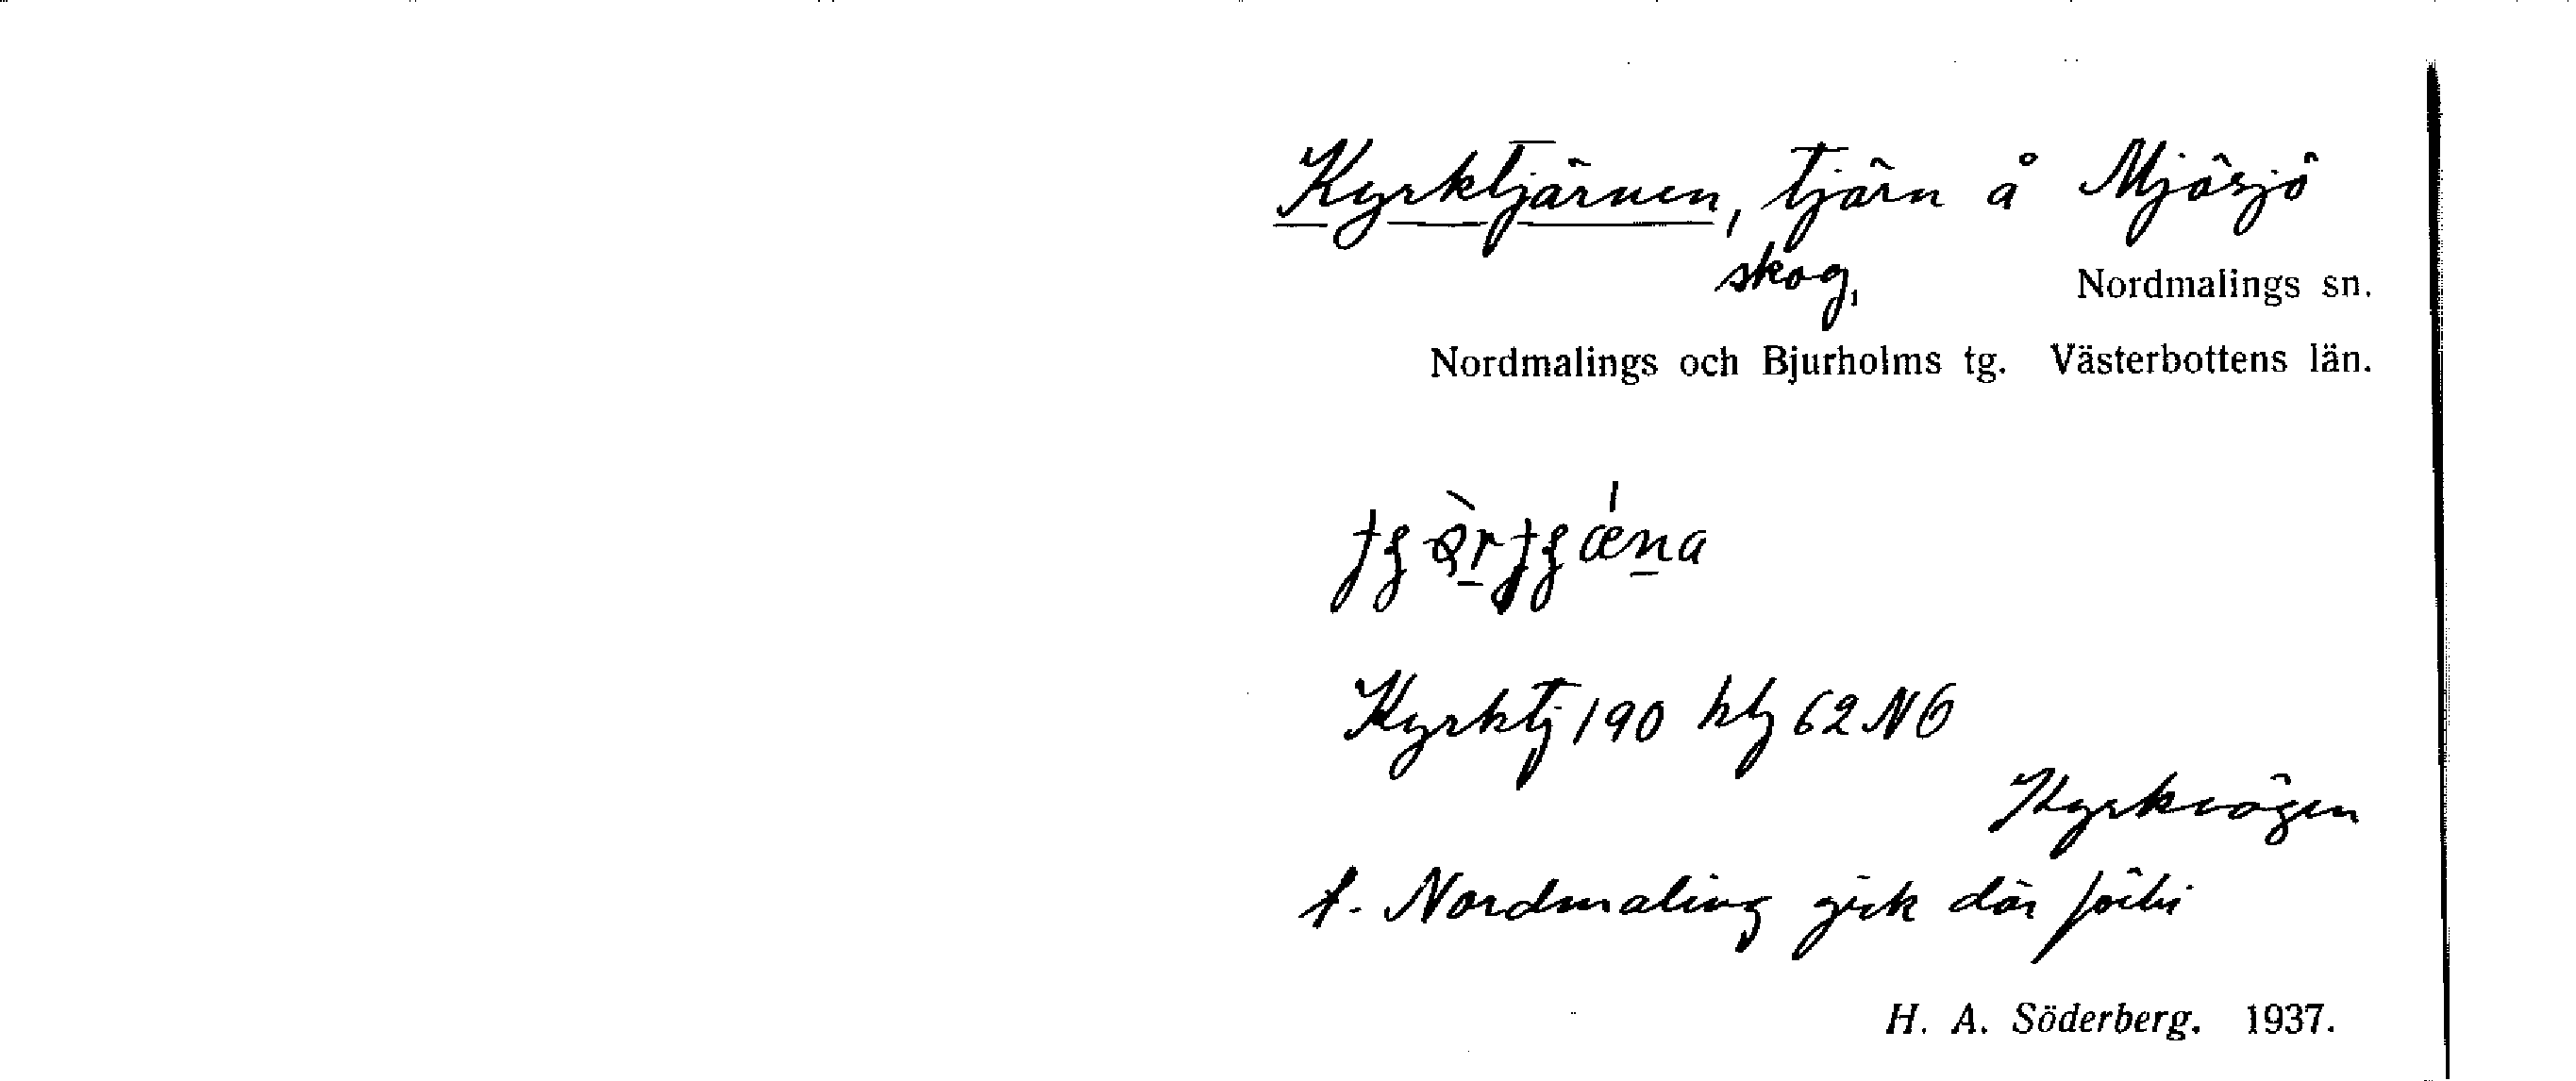 Kyrktjärnen, tjärn å Mjösjö
skog, Nordmalings sn.
Nordmalings och Bjurholms tg. Västerbottens län.
Kyrktj 190 htg 62 NÖ
Kyrkvägen
t. Nordmaling gick där förbi
H. A. Söderberg. 1937.